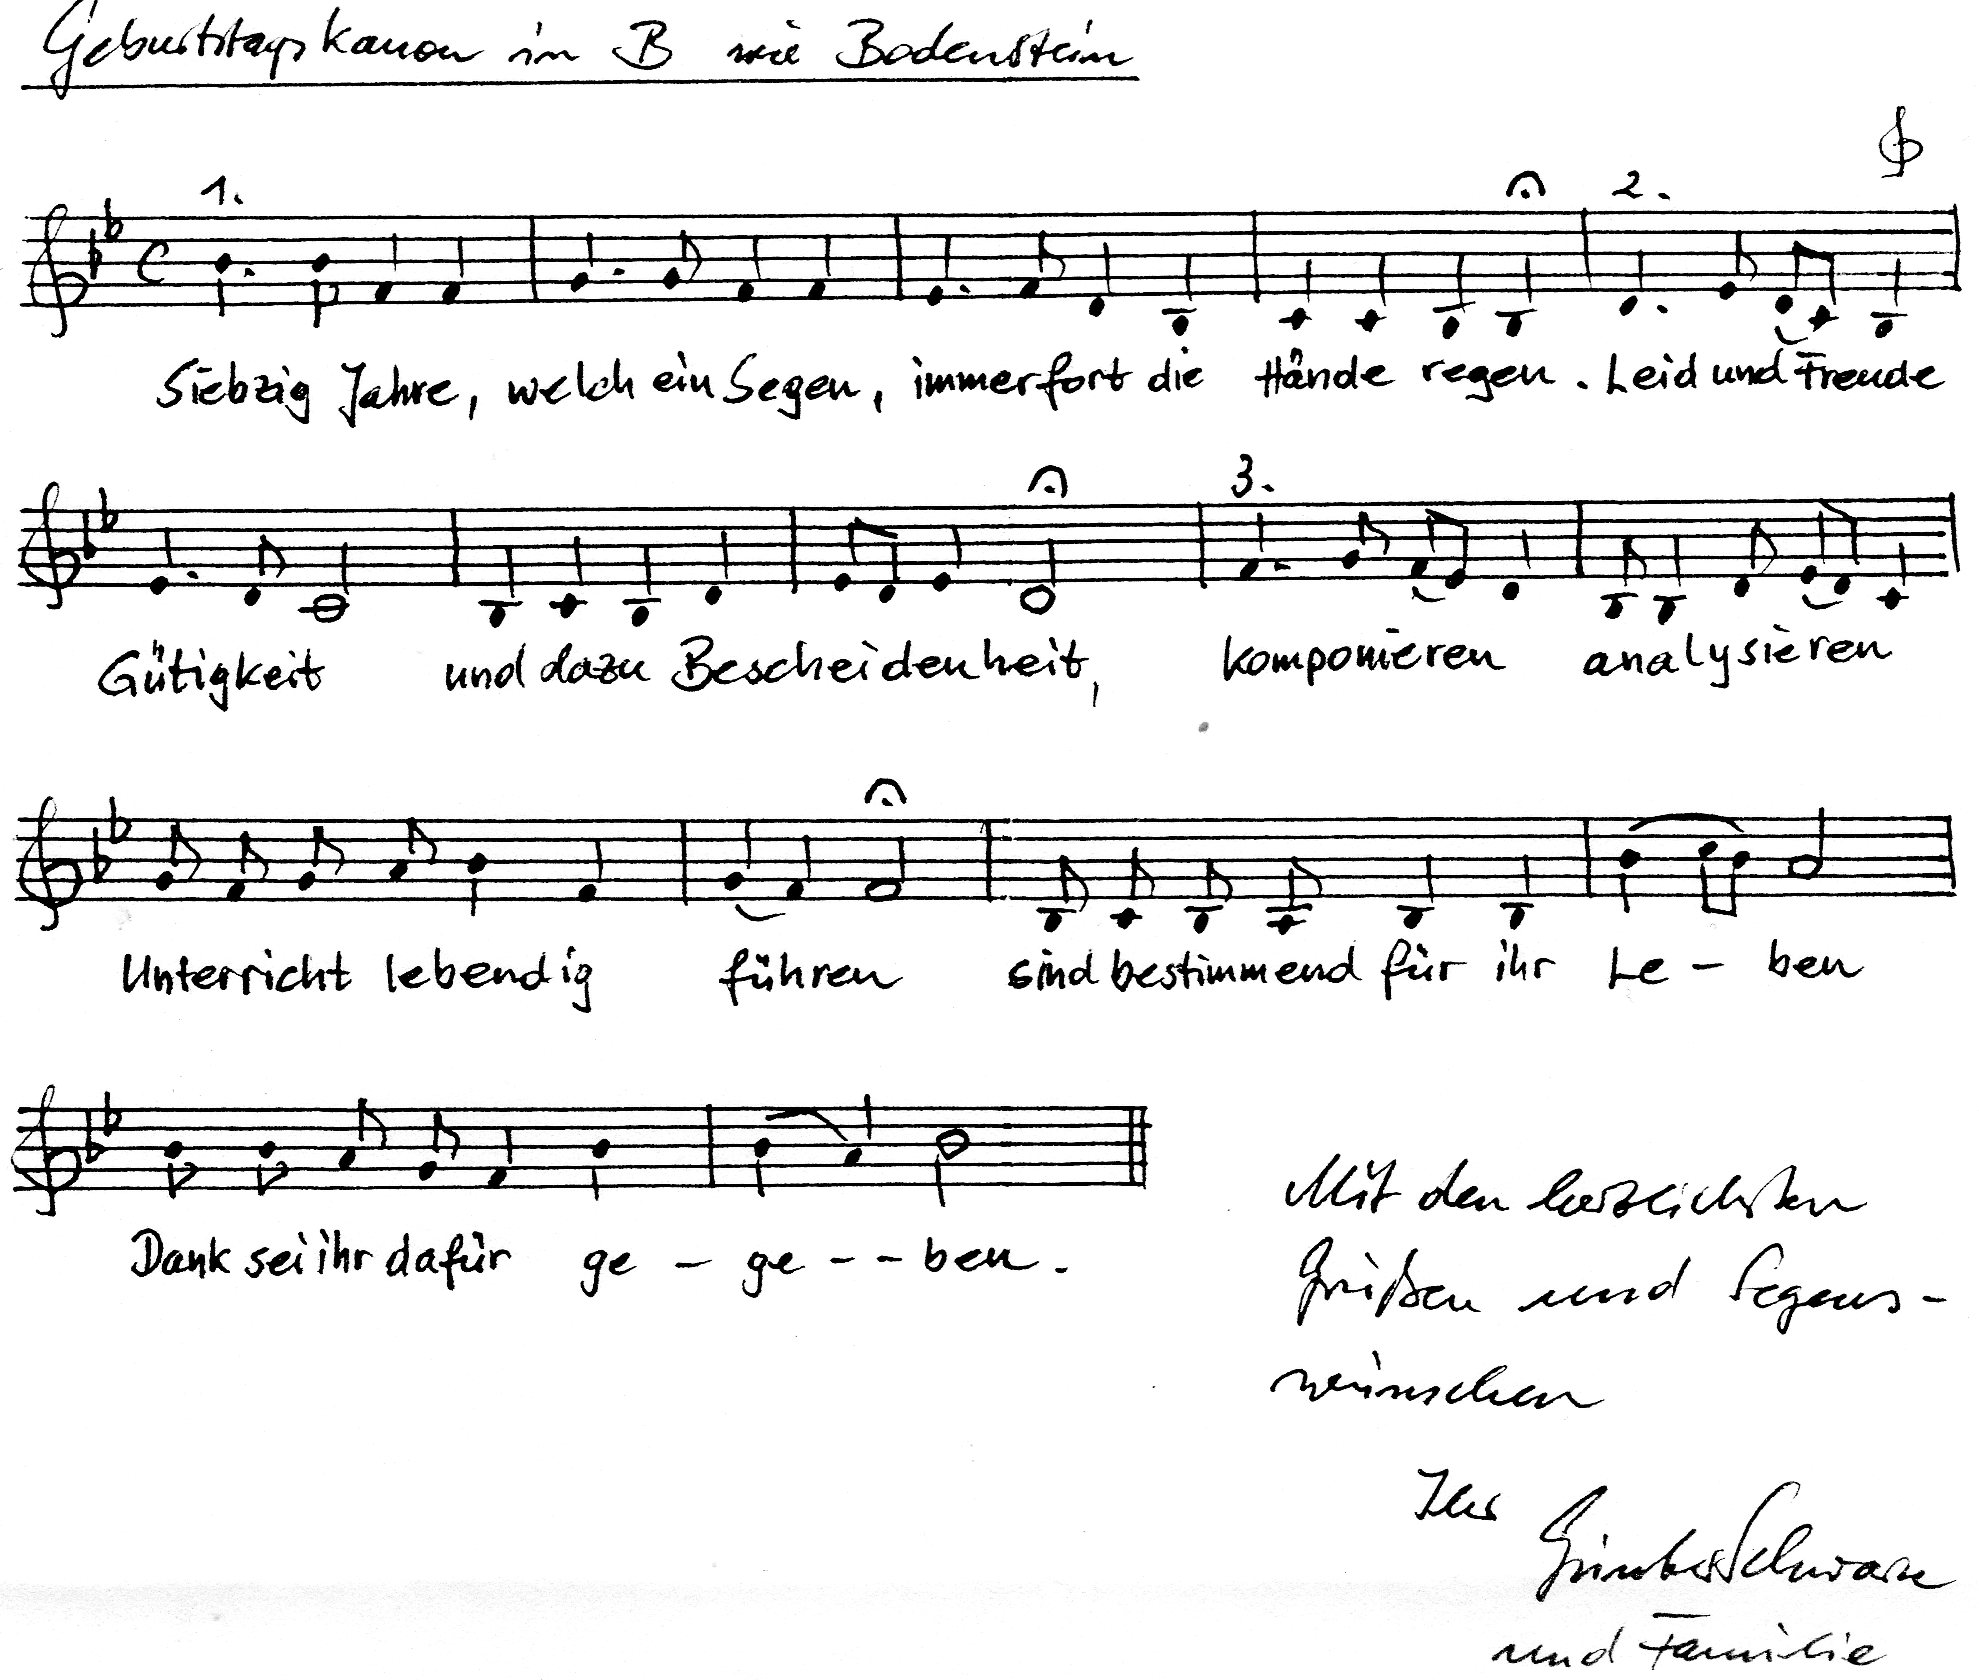 Geburtstagskanon in B wie Bodenstein
1. 2.
Siebzig Jahre, welch ein Segen, immerfort die Hände regen. Leid und Freude
3.
Gütigkeit und dazu Bescheidenheit, komponieren analysieren
Unterricht lebendig führen sind bestimmend für ihr Le - ben
Dank sei ihr dafür ge - ge - - ben.
Mit den herzlichsten
Grüßen und Segens-
wünschen
Ihr
Günter Schwarze
und Familie